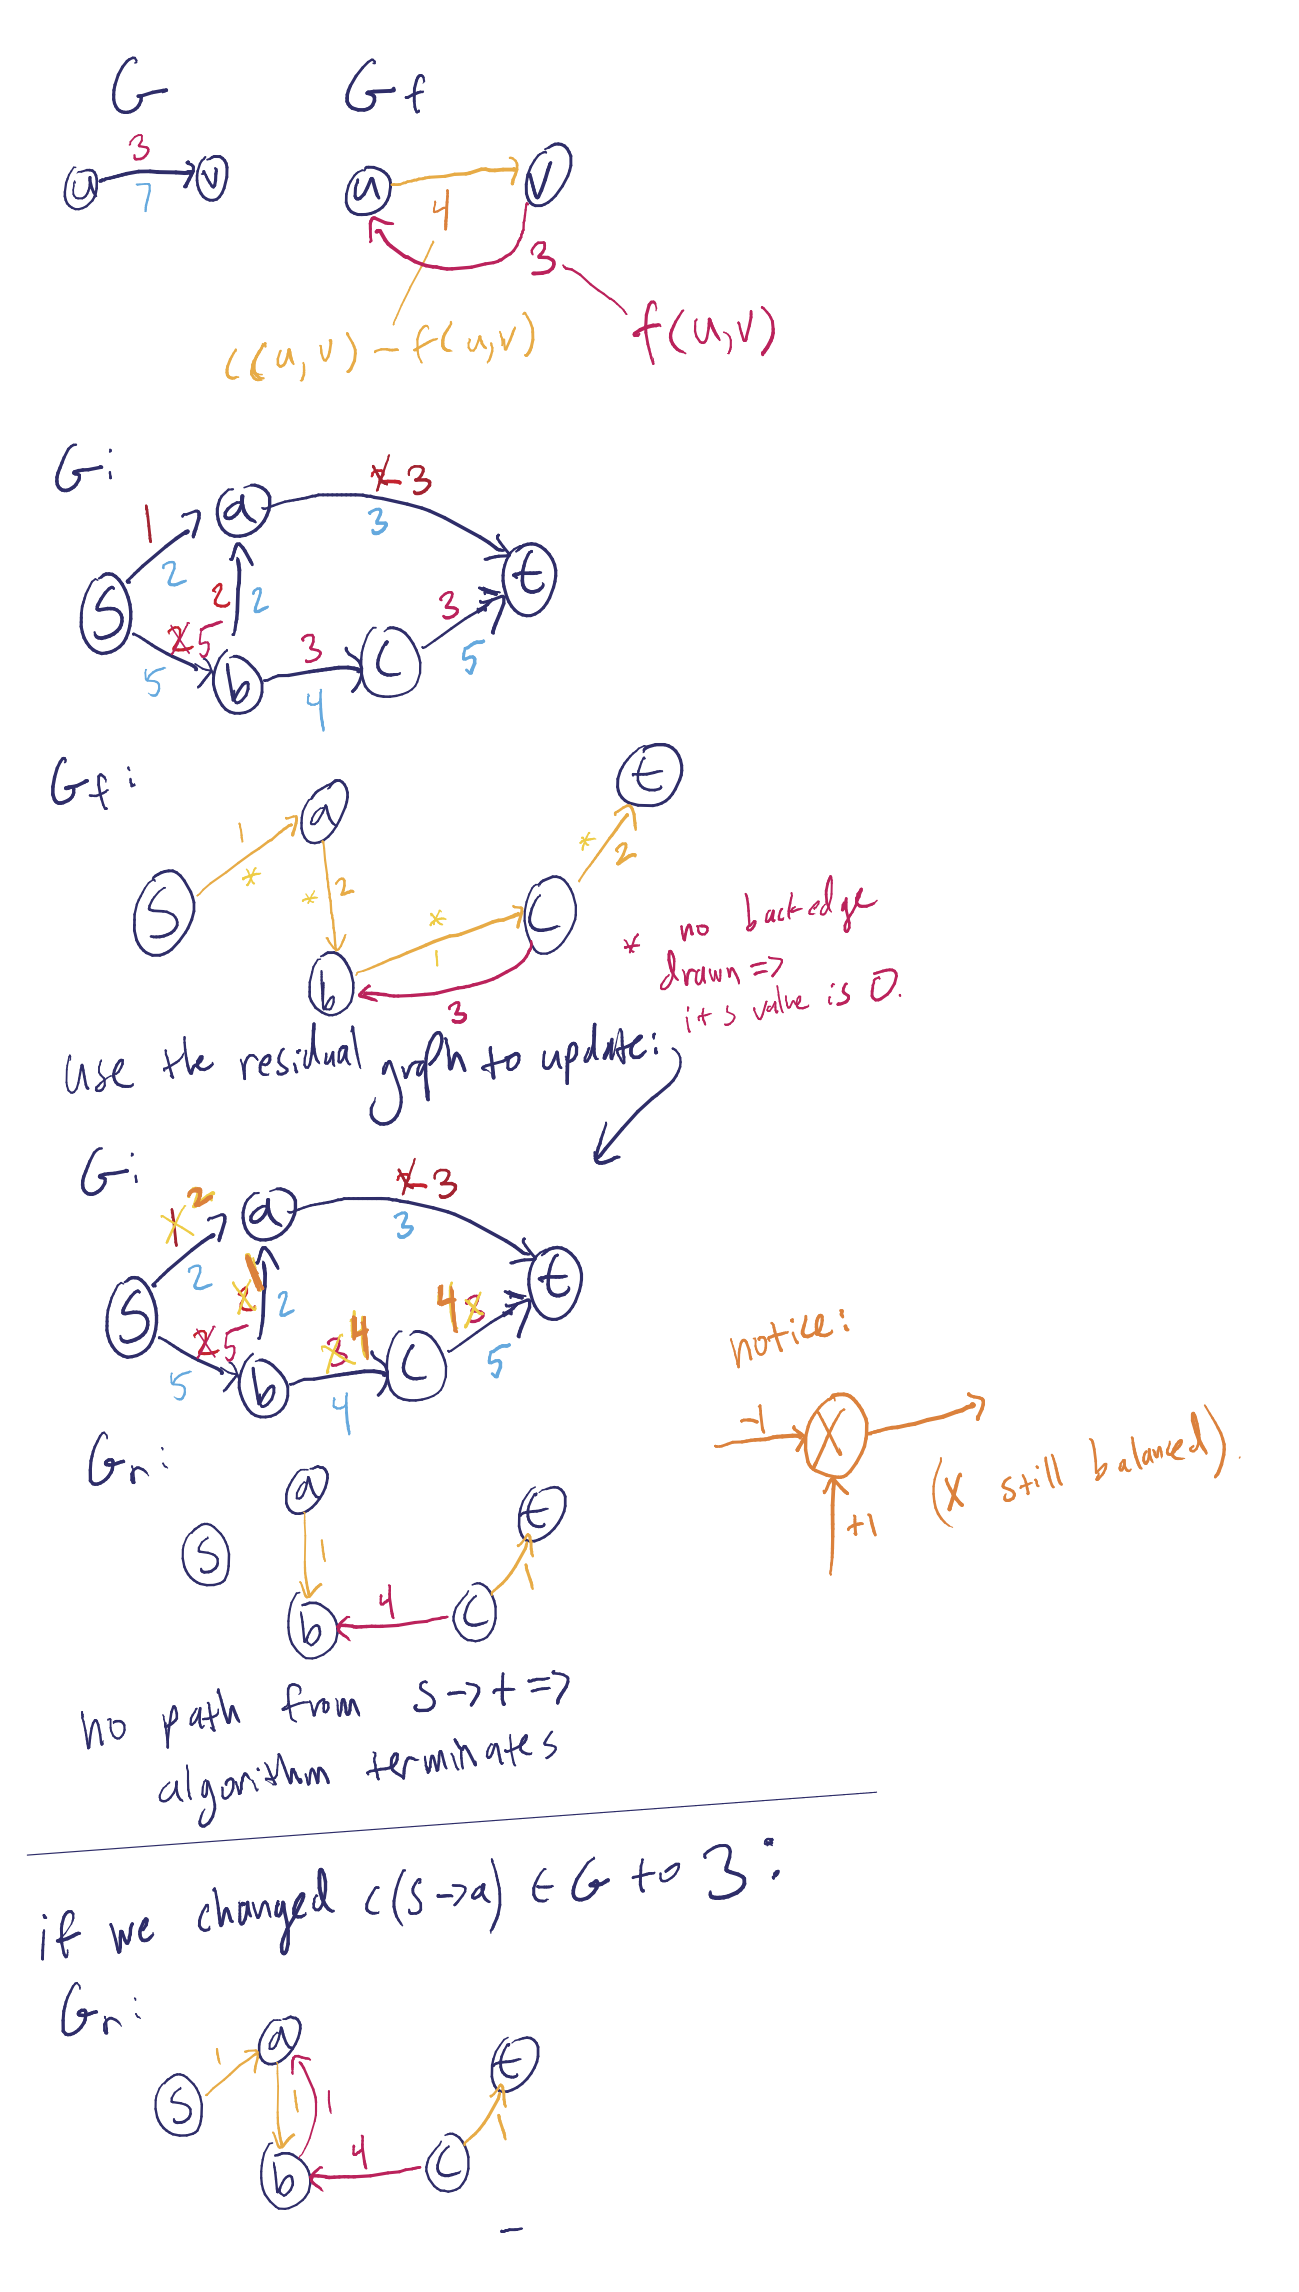 G Gf
3
u v
7
u v
4
3
c(u,v) - f(u,v)
f(u,v)
G:
1 3
1 a 3
2 t
S 2 2 3
2 5 3 c 5
5 b 4
Gf:
t
a
1 * 2
* 2
S * * c
1
b 3
* no backedge
drawn =>
its value is 0.
use the residual graph to update:
G:
1 3
1 2 a 3
2 t
S 2 1 2 4 3
2 5 3 4 c 5
5 b 4
notice:
-1 X
+1
(X still balanced).
Gr:
a
t
S 1 1
4 c
b
no path from s->t =>
algorithm terminates
if we changed c(s->a) ∈ G to 3:
Gr:
a
1 t
S 1 1 1
4 c
b